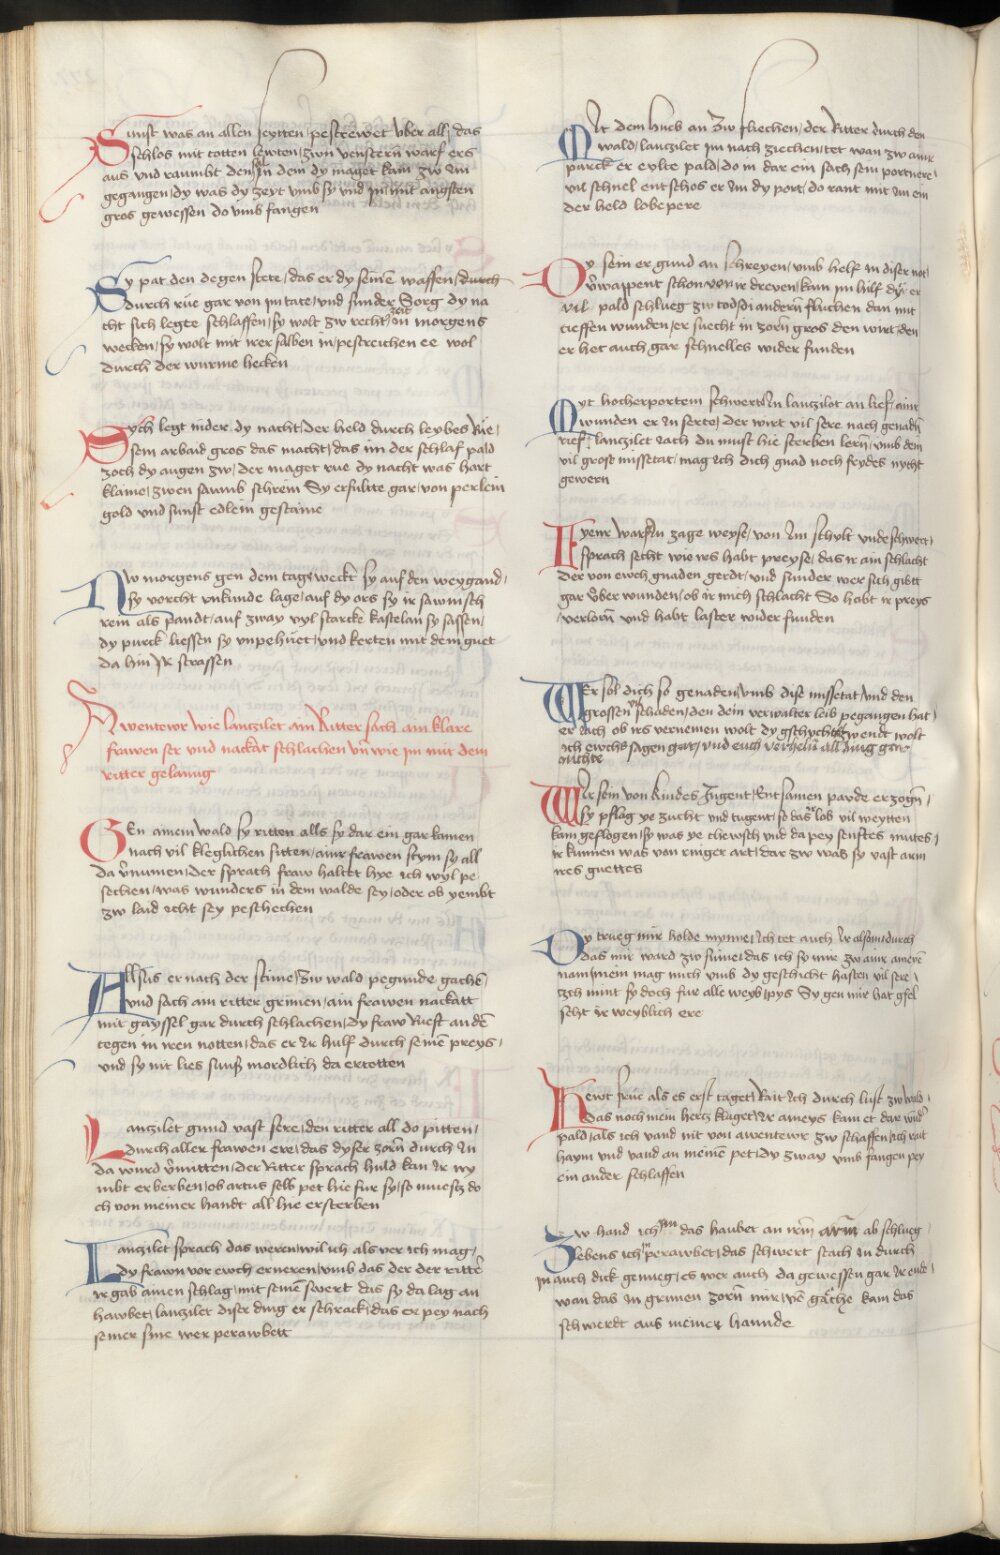 Sunst was an allen seytten / pestrewet vber all / das
schlos mit totten lewten / zwn venstern warf ers
aus vnd raumbt den sal / In dem dy maget kam zw Im
gegangen / dy was dy zeyt vmb sy vnd Im mit angsten
gros gewessen do vmb fangen
Sy pat den degen stete / das er dy seinē waffen / durch
durch rue gar von Im tate / vnd sunder Sorg dy na
cht sich legte schlaffen / sy wolt zw recht zeit / In morgens
wecken / sy wolt mit irer salben in / pestreichen ee wol
durch der wurme hecken
Sych legt nider / dy nacht / der held durch leybes Rue /
sein arbaid gros das macht / das im der schlaf pald
zoch dy augen zw / der maget rue dy nacht was hart
klaine / zwen saumb schrein Sy erfulte gar / von perlein
gold vnd sunst edlein gestaine
Nw morgens gen dem tag / weckt sy auf den weygand /
sy vorcht vnkunde lage / auf dy ors sy ir sawmsch
rein als pandt / auf zway vyl starcke kastelan sy sassen /
dy purck liessen sy vnpehuet / vnd kerten mit dem guet
da hin Ir strassen
Awentewr wie lanczilet ain Ritter sach ain klare
frawen ser vnd nackat schlachen vn̄ wie im mit dem
ritter gelanng
GEn ainem wald sy ritten alls sy dar ein gar kamen
nach vil kleglichen sitten / ainr frawen stym sy all
da v̄numen / der sprach fraw haltet hye ich wyl pe
sechen / was wunders in dem walde sey / oder ob yembt
zw laid icht sey peschechen
Allsus er nach der stime / Zw wald pegunde gachē /
vnd sach ain ritter grimen / ain frawen nackatt
mit gayssel gar durch schlachen / dy fraw Rueft an dē
tegen in iren notten / das er Ir hulf durch seinē preys /
vnd sy nit lies sunst mordlich da ertotten
Lanczilet gund vast sere / den ritter all do pitten /
durch aller frawen ere / das dyser zorn durch In
da wurd v̄mitten / der Ritter sprach huld kan Ir ny
mbt erberben / ob artus selb pet hie fur sy / so muest do
ch von meiner handt all hie ersterben
Lanczilet sprach das weren / wil ich als ver ich mag /
dy frawn vor ewch erneren / vmb das der der ritter
ir gab ainen schlag / mit seinē swert das sy da lag an
hawbet / lanczilet diser ding er schrack / das er pey nach
seiner sine wer perawbett
Mit dem hueb an Zw fliechen / der Ritter durch den
wald / lanczilet im nach ziechen / tet wan zw ainr
purck er eylte pald / do in dar ein sach sein portnere /
vil schnel entschos er Im dy port / do rant mit Im ein
der held lobepere
Dy sein er gund an schreyen / vmb helf in diser not /
v̄wappent schon von ir dreyen / kam im hilf dy er
vil pald schlueg zw tod / di andern fluchen dan mit
tieffen wunden / er suecht in zorn gros den wirt / den
er het auch gar schnelles wider funden
Myt hocherportem schwert / In lanczilot an lief / ainr
wunden er In serte / der wirt vil sere nach genadn̄
rief / lanczilet Iach du must hie sterben lern̄ / vmb dein
vil grose missetat / mag ich dich gnad noch frydes nycht
gewern
Eyenr warf In zage weyse / von Im schylt vnde schwert /
sprach secht wie irs habt preyse / das ir ain schlacht
der von ewch gnaden gerdt / vnd sunder wer sich gibtt
gar vber wunden / ob ir mich schlacht So habt ir preys
verlorn̄ vnd habt laster wider funden
WEr sol dich so genaden / vmb dise missetat / vnd den
grossen schaden / den dein verwalter leib pegangen hat /
er Iach ob irs vernemen wolt dy gschycht / zwend wolt
ich ewchs sagen gar / vnd euch verheln all ding gar
nichte
WIr sein von kindes Iugent / Ent samen payde erzogn̄ /
sy pflag ye zucht vnd tugent / so das ir lob vil weytten
kam geflogen / sy was ye chewsch vnd da pey senftes mutes /
ir kunnen was von ringer art / dar zw was sy vast arm
ires guettes
Dy trueg mir holde mynne / Ich tet auch Ir alsam / durch
das mir ward zw sinne / das ich sy mir zw ainr ameyē
nam / nem mag mich vmb dy geschicht hassen vil sere /
Ich mint sy doch fur alle weyb / pys Sy gen mir hat gsel
scht ir weyblich ere
Hewt frue als es erst taget / Rait Ich durch lust zw wald /
das noch mein hercz klaget / Ir ameys kam et dar wider
pald / als ich vand nit von awentewr zw schaffen / ich rait
haym vnd vand an meinē pet / dy zway vmb fangen pey
ein ander schlaffen
Zw hand ich im das haubet an irm̄ arm ab schlueg /
lebens ich in perawbet / das schwert stach In durch
in auch dick genueg / es wer auch da gewessen gar Ir ende /
wan das In grimen zorn̄ mir vō gāche kam das
schwerdt aus meiner hannde